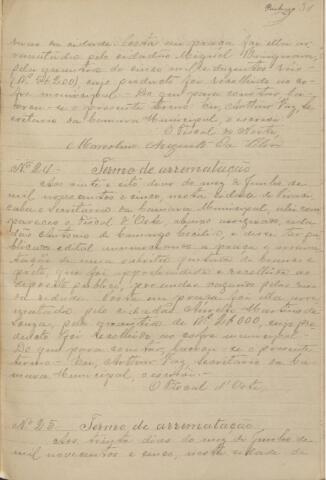 31
ruas da cidade. Posta em praça foi ella ar-
rematada pelo cidadão Miguel
pela quantia de cinco mil e duzentos reis
(Rs 5$200) cujo producto foi recolhido ao co-
fre municipal. Do que para constar la-
vrou-se o presente termo. Eu, Arthur Vaz, se-
cretario da Camara Municipal, o escrevi.
O Fiscal do Norte
Augusto da Silva
Nº 24 - Termo de arrematação
Aos vinte e oito dias do mez de Junho de
mil novecentos e cinco, nesta cidade de
e Secretaria da Camara Municipal, ahi com-
pareceu o Fiscal d'Oeste, abaixo assignado, cida-
dão Antonio de Camargo e disse ter pu-
blicado edital a praça e arrema-
tação de uma cabrita de branco e
preto, que foi apprehendida e recolhida ao
deposito publico, por andar vagando pelas ruas
da cidade. Posta em praça foi ella arre-
matada pelo cidadão Angelo Martins de
Souza, pela quantia de Rs 2$000, cujo pro-
ducto foi recolhido ao cofre municipal.
Do que para constar, lavrou-se o presente
termo. Eu, Arthur Vaz, secretario da Ca-
mara Municipal, o escrevi.
O Fiscal d'Oeste,
Nº 25 - Termo de arrematação
Aos trinta dias do mez de Junho de
mil novecentos e cinco, nesta cidade de